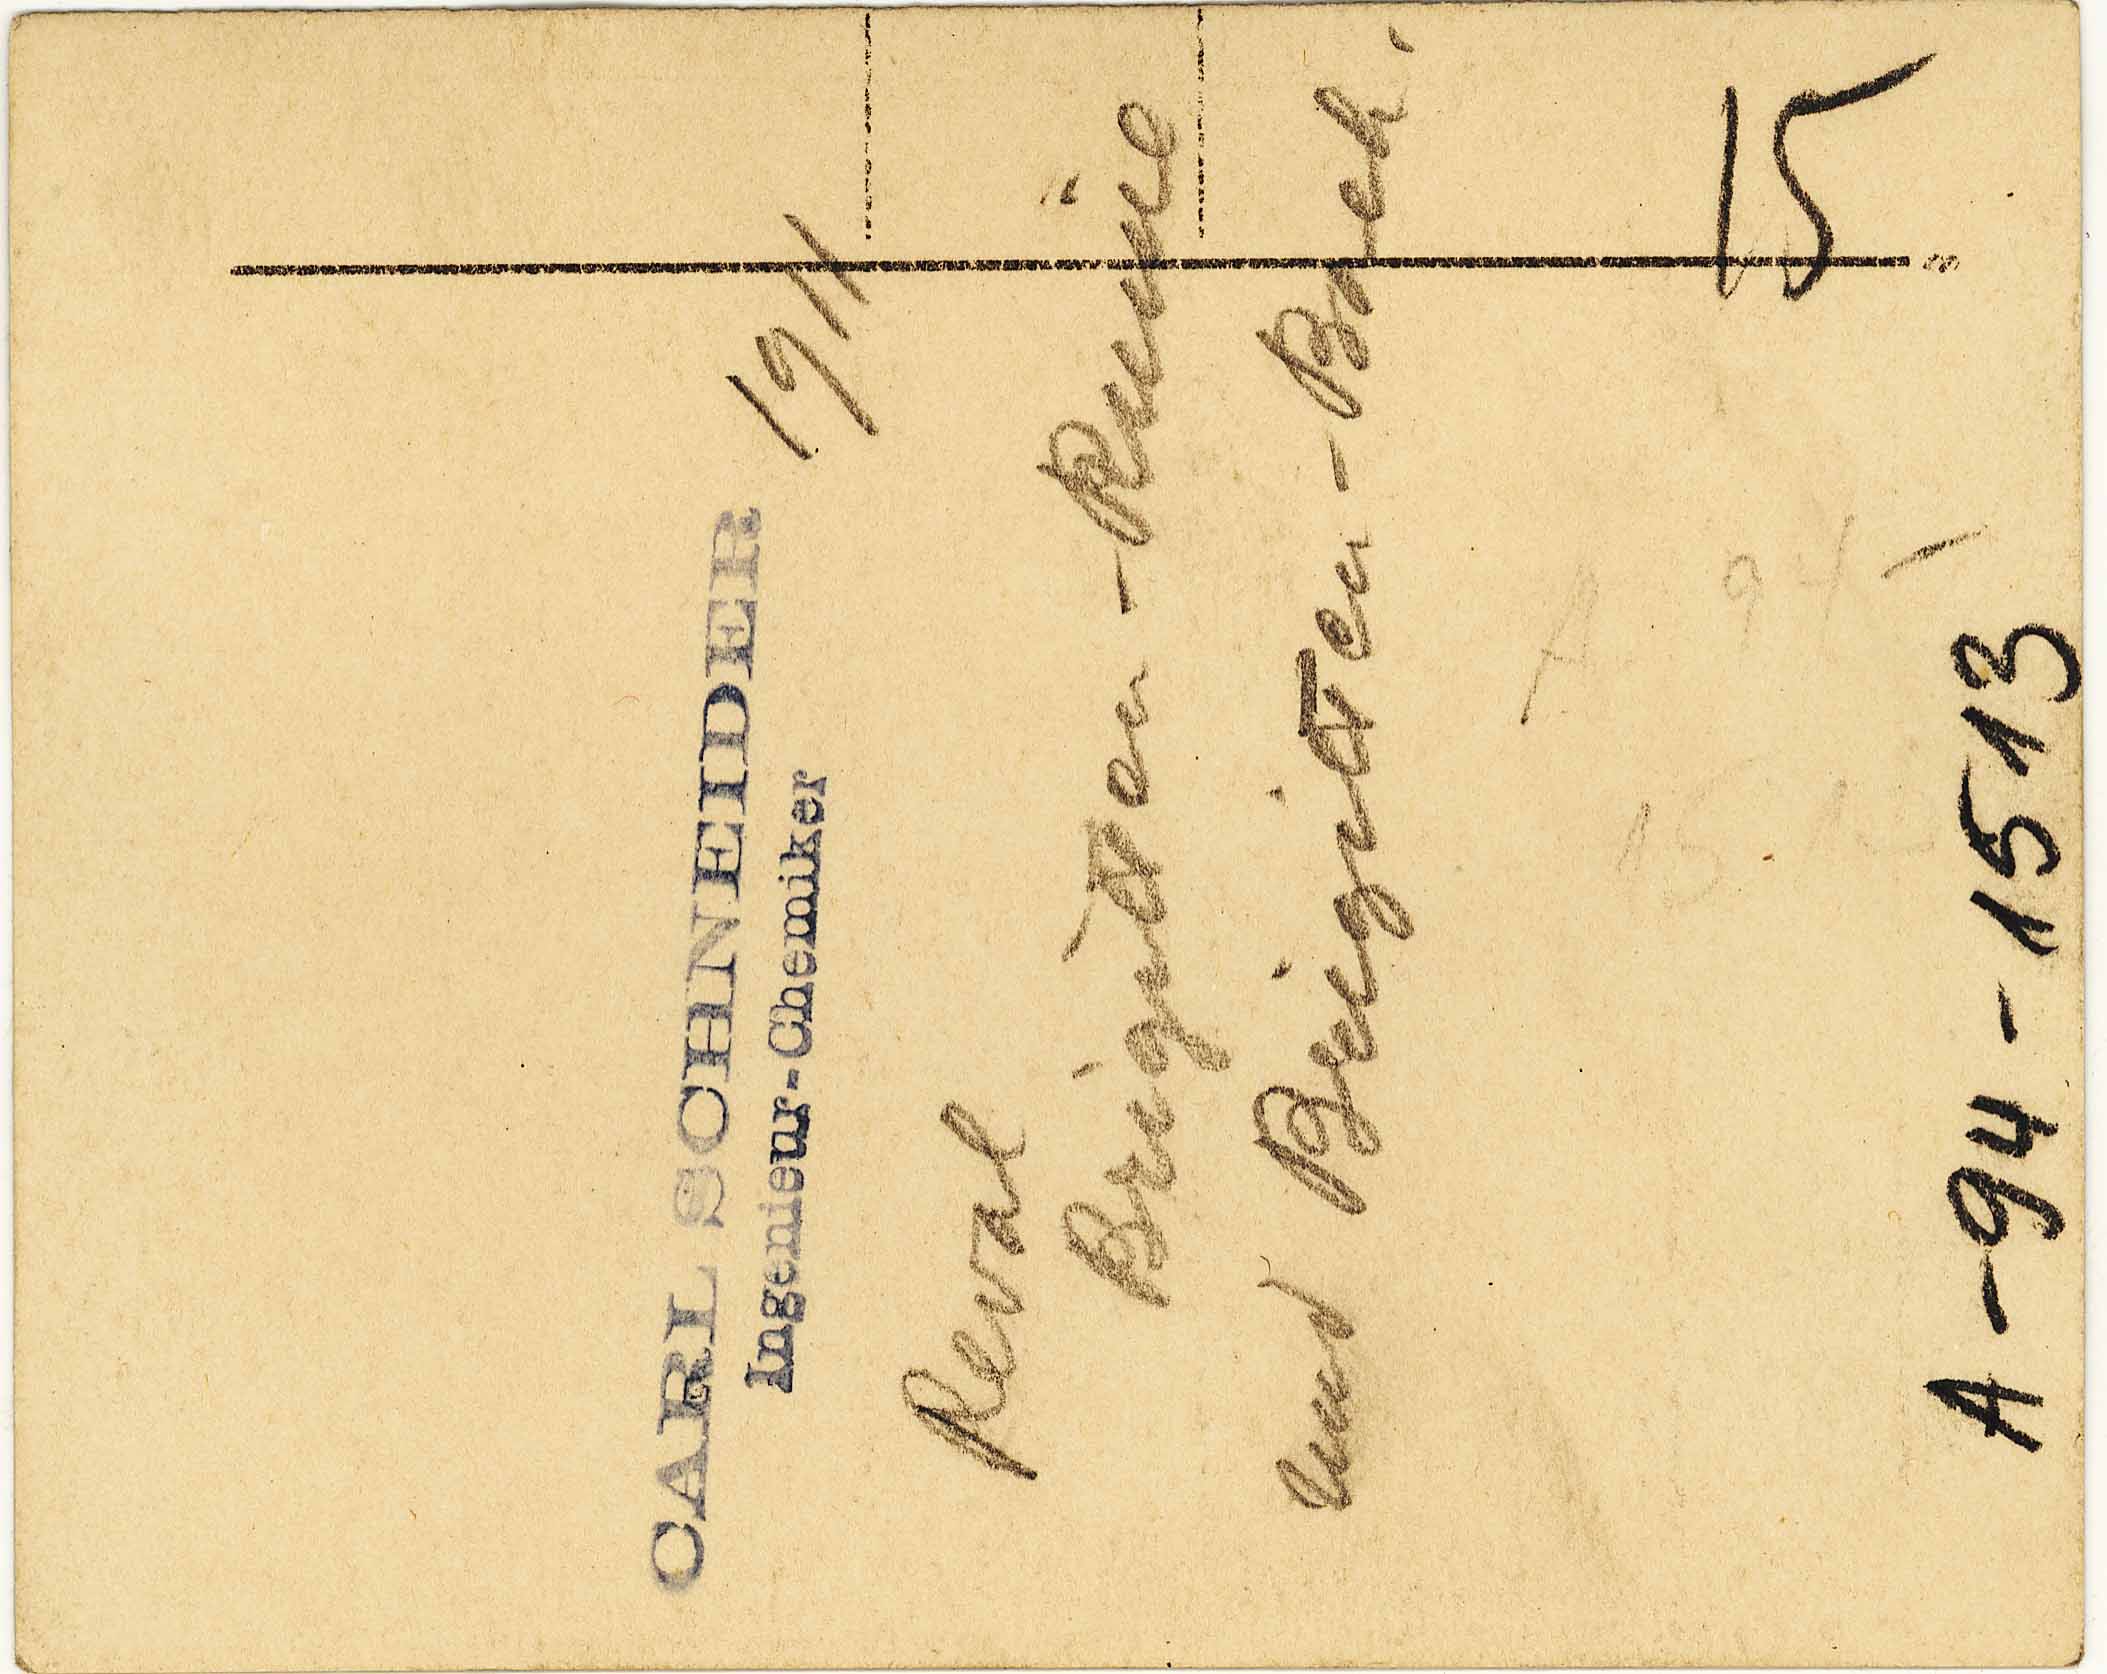 CARL SCHNEIDER
Ingenieur-Chemiker
1911
Reval
Brigitten-Ruine
und Brigitten-Bach.
15
A 94
A-94-1513